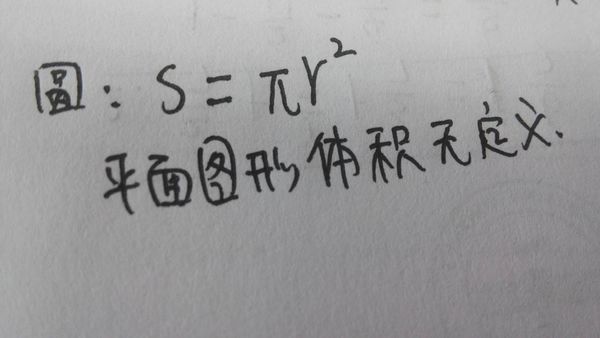 圆：S=πr²
平面图形体积无定义.